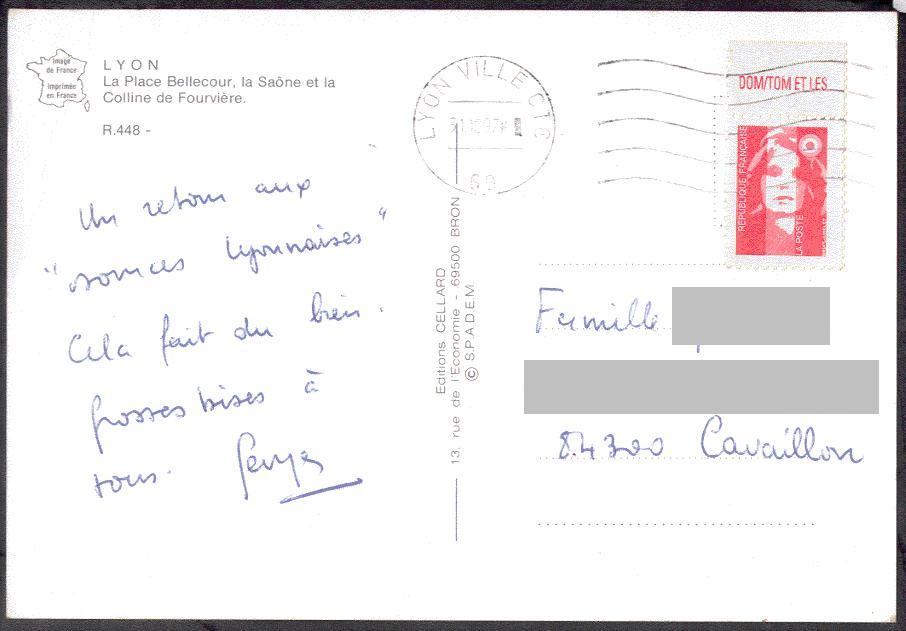 Image
de France
Imprimée
en France
LYON
La Place Bellecour, la Saône et la
Colline de Fourvière.
R.448 -
Un retour aux
"sources lyonnaises"
Cela fait du bien.
Grosses bises à
tous.
Editions CELLARD
13, rue de l'Economie - 69500 BRON
© S.P.A.D.E.M.
LYON VILLE CTC
69
DOM/TOM ET LES
REPUBLIQUE FRANÇAISE
LA POSTE
Famille
84300 Cavaillon